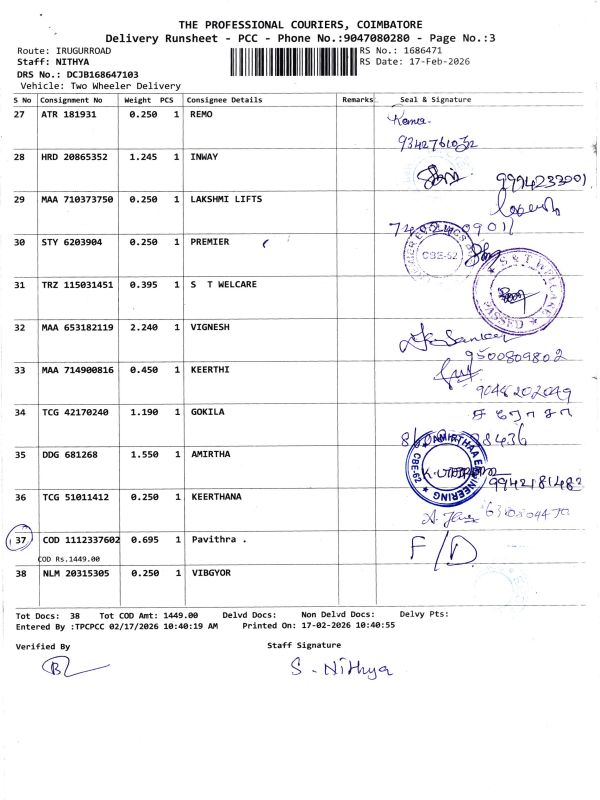 THE PROFESSIONAL COURIERS, COIMBATORE
Delivery Runsheet - PCC - Phone No.:9047080280 - Page No.:3
Route: IRUGURROAD
RS No.: 1686471
Staff: NITHYA
RS Date: 17-Feb-2026
DRS No.: DCJB168647103
Vehicle: Two Wheeler Delivery
S No Consignment No Weight PCS Consignee Details Remarks Seal & Signature
27 ATR 181931 0.250 1 REMO
9342761032
28 HRD 20865352 1.245 1 INWAY
9994233001
29 MAA 710373750 0.250 1 LAKSHMI LIFTS
30 STY 6203904 0.250 1 PREMIER
CBE-62
31 TRZ 115031451 0.395 1 S T WELCARE
S & T WELCARE
PASSED
32 MAA 653182119 2.240 1 VIGNESH
9500809802
33 MAA 714900816 0.450 1 KEERTHI
9048202049
34 TCG 42170240 1.190 1 GOKILA
35 DDG 681268 1.550 1 AMIRTHA
AMIRTHAA ENGINEERING
CBE-62
9942181482
36 TCG 51011412 0.250 1 KEERTHANA
37 COD 1112337602 0.695 1 Pavithra .
F/D.
COD Rs.1449.00
38 NLM 20315305 0.250 1 VIBGYOR
Tot Docs: 38 Tot COD Amt: 1449.00 Delvd Docs: Non Delvd Docs: Delvy Pts:
Entered By :TPCPCC 02/17/2026 10:40:19 AM Printed On: 17-02-2026 10:40:55
Verified By
Staff Signature
S. Nithya